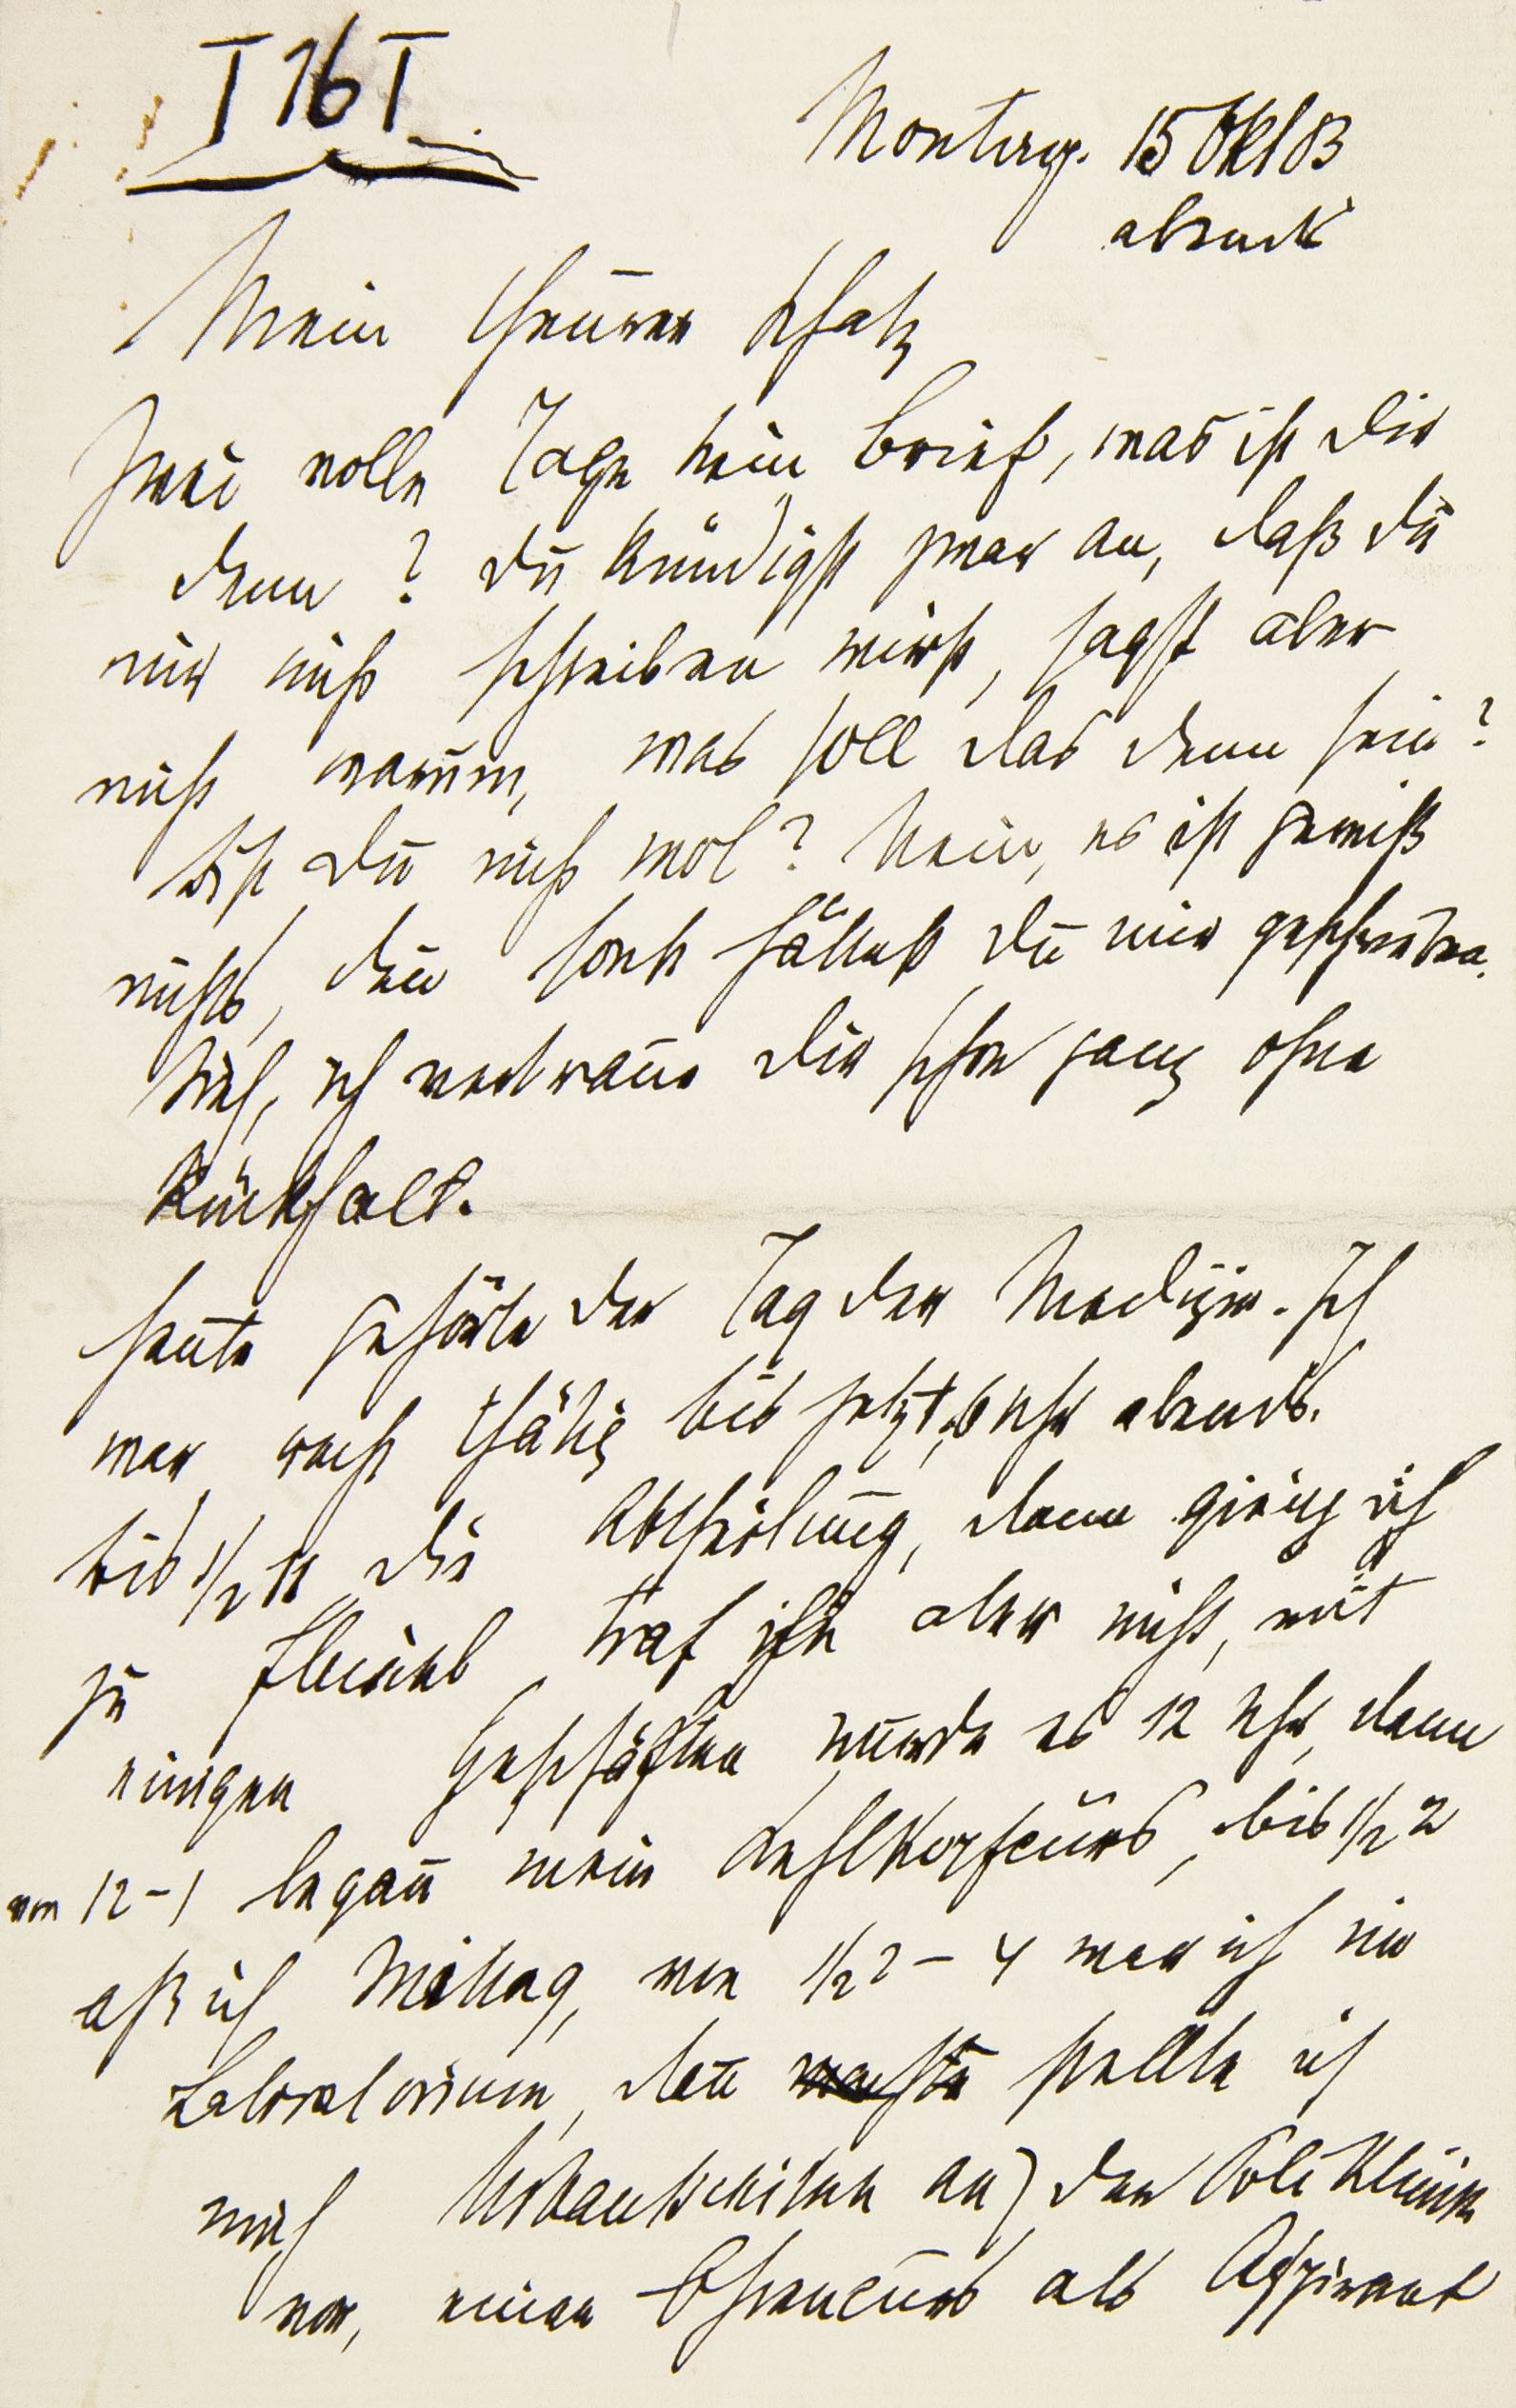 T 16 T
Montag. 15 Okt 83
abends
Mein theures Schatz
Zwei volle Tage kein Brief, was ist dir
denn? Du kündigst zwar an, daß du
mir nicht schreiben wirst, sagst aber
nicht warum, was soll das denn sein?
Bist du nicht wol? Nein, es ist gewiß
nichts, deñ sonst hättest du mir geschrieben.
Sieh, ich vertraue dir schon ganz ohne
Rückhalt.
Heute gehörte der Tag der Medizin. Ich
war recht thätig bis jetzt, 6 Uhr abends.
bis 1/2 11 die Abtheilung, dann gieng ich
zu Fleischl traf ihn aber nicht, mit
einigen Geschäften wurde es 12 Uhr, dann
von 12-1 begañ mein Kehlkopfcurs, bis 1/2 2
aß ich Mittag, von 1/2 2 - 4 war ich im
Laboratorium, dañ stellte ich
mich Urbantschitsch an der Poliklinik
vor, einen Ohrencurs als Aspirant